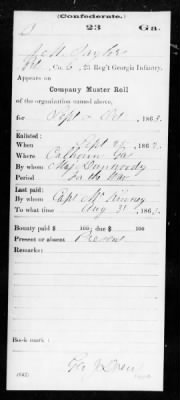 (Confederate.)
23 Ga.
Pvt., Co. G, 23 Reg't Georgia Infantry.
Appears on
Company Muster Roll
of the organization named above,
for Sept & Oct, 1863.
Enlisted:
When Sept 25, 1862.
Where Calhoun Ga
By whom Maj Dunwoody
Period For the War
Last paid:
By whom Capt McKinney
To what time Aug 31, 1863.
Bounty paid $ 100 due $ 100
Present or absent Present
Remarks:
Book mark:
(642)